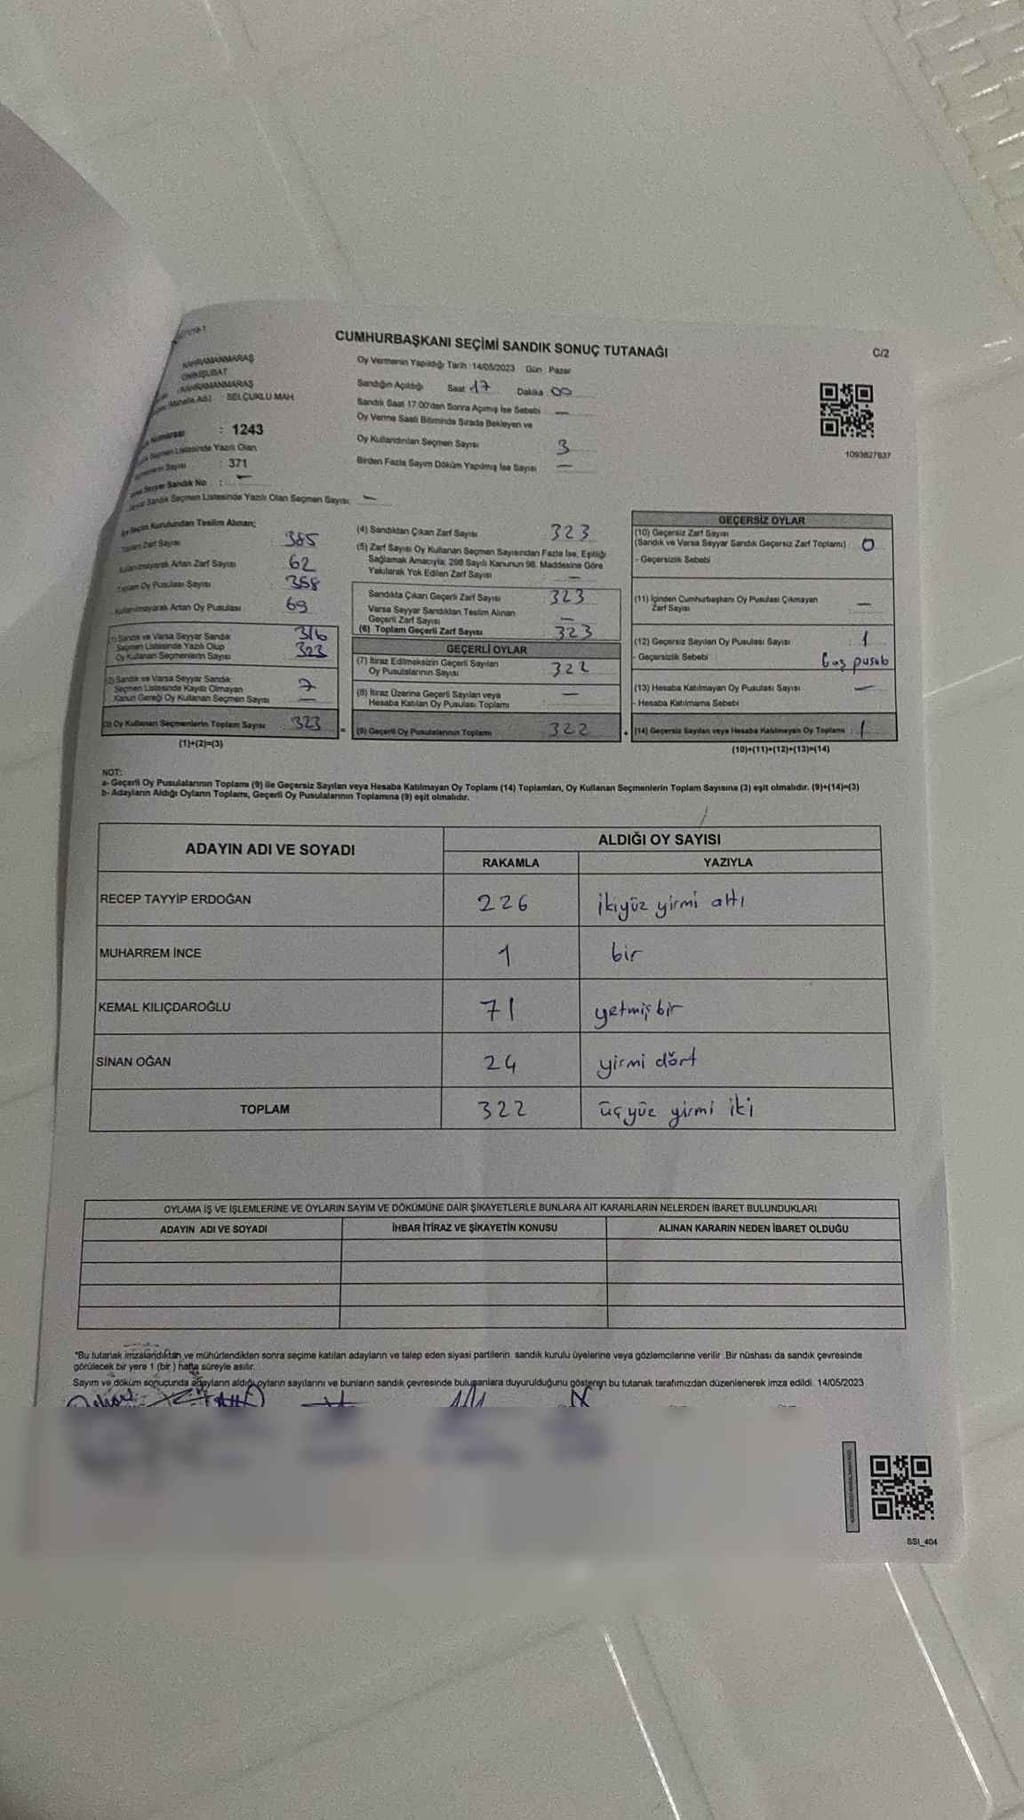 CUMHURBAŞKANI SEÇİMİ SANDIK SONUÇ TUTANAĞI
C/2
KAHRAMANMARAŞ
ONİKİŞUBAT
KAHRAMANMARAŞ
SELÇUKLU MAH
: 1243
Seçmen Listesinde Yazılı Olan
: 371
Seyyar Sandık No :
Sandık Seçmen Listesinde Yazılı Olan Seçmen Sayısı
Oy Vermenin Yapıldığı Tarih :14/05/2023 Gün : Pazar
Sandığın Açıldığı Saat 17 Dakika 00
Sandık Saat 17:00'den Sonra Açılmış İse Sebebi —
Oy Verme Saati Bitiminde Sırada Bekleyen ve
Oy Kullandırılan Seçmen Sayısı 3
Birden Fazla Sayım Döküm Yapılmış İse Sayısı —
1093827637
Seçim Kurulundan Teslim Alınan;
Toplam Zarf Sayısı 385
Kullanılmayarak Artan Zarf Sayısı 62
Toplam Oy Pusulası Sayısı 358
Kullanılmayarak Artan Oy Pusulası 69
(1) Sandık ve Varsa Seyyar Sandık 316
Seçmen Listesinde Yazılı Olup 323
Oy Kullanan Seçmenlerin Sayısı
(2) Sandık ve Varsa Seyyar Sandık
Seçmen Listesinde Kayıtlı Olmayan 7
Kanun Gereği Oy Kullanan Seçmen Sayısı —
(3) Oy Kullanan Seçmenlerin Toplam Sayısı 323
(1)+(2)=(3)
(4) Sandıktan Çıkan Zarf Sayısı 323
(5) Zarf Sayısı Oy Kullanan Seçmen Sayısından Fazla İse, Eşitliği
Sağlamak Amacıyla; 298 Sayılı Kanunun 98. Maddesine Göre
Yakılarak Yok Edilen Zarf Sayısı —
Sandıkta Çıkan Geçerli Zarf Sayısı 323
Varsa Seyyar Sandıktan Teslim Alınan
Geçerli Zarf Sayısı —
(6) Toplam Geçerli Zarf Sayısı 323
GEÇERLİ OYLAR
(7) İtiraz Edilmeksizin Geçerli Sayılan
Oy Pusulalarının Sayısı 322
(8) İtiraz Üzerine Geçerli Sayılan veya
Hesaba Katılan Oy Pusulası Toplamı —
= (9) Geçerli Oy Pusulalarının Toplamı 322
GEÇERSİZ OYLAR
(10) Geçersiz Zarf Sayısı
(Sandık ve Varsa Seyyar Sandık Geçersiz Zarf Toplamı) 0
- Geçersizlik Sebebi
(11) İçinden Cumhurbaşkanı Oy Pusulası Çıkmayan
Zarf Sayısı —
(12) Geçersiz Sayılan Oy Pusulası Sayısı 1
- Geçersizlik Sebebi
(13) Hesaba Katılmayan Oy Pusulası Sayısı —
- Hesaba Katılmama Sebebi
+ (14) Geçersiz Sayılan veya Hesaba Katılmayan Oy Toplamı : 1
(10)+(11)+(12)+(13)=(14)
NOT:
a- Geçerli Oy Pusulalarının Toplamı (9) ile Geçersiz Sayılan veya Hesaba Katılmayan Oy Toplamı (14) Toplamları, Oy Kullanan Seçmenlerin Toplam Sayısına (3) eşit olmalıdır. (9)+(14)=(3)
b- Adayların Aldığı Oyların Toplamı, Geçerli Oy Pusulalarının Toplamına (9) eşit olmalıdır.
ADAYIN ADI VE SOYADI ALDIĞI OY SAYISI
RAKAMLA YAZIYLA
RECEP TAYYİP ERDOĞAN 226 ikiyüz yirmi altı
MUHARREM İNCE 1 bir
KEMAL KILIÇDAROĞLU 71 yetmişbir
SİNAN OĞAN 24 yirmi dört
TOPLAM 322 üçyüz yirmi iki
OYLAMA İŞ VE İŞLEMLERİNE VE OYLARIN SAYIM VE DÖKÜMÜNE DAİR ŞİKAYETLERLE BUNLARA AİT KARARLARIN NELERDEN İBARET BULUNDUKLARI
ADAYIN ADI VE SOYADI İHBAR İTİRAZ VE ŞİKAYETİN KONUSU ALINAN KARARIN NEDEN İBARET OLDUĞU
*Bu tutanak imzalandıktan ve mühürlendikten sonra seçime katılan adayların ve talep eden siyasi partilerin sandık kurulu üyelerine veya gözlemcilerine verilir. Bir nüshası da sandık çevresinde
görülecek bir yere 1 (bir ) hafta süreyle asılır.
Sayım ve döküm sonucunda adayların aldığı oyların sayılarını ve bunların sandık çevresinde bulunanlara duyurulduğunu gösteren bu tutanak tarafımızdan düzenlenerek imza edildi. 14/05/2023
SSI_404